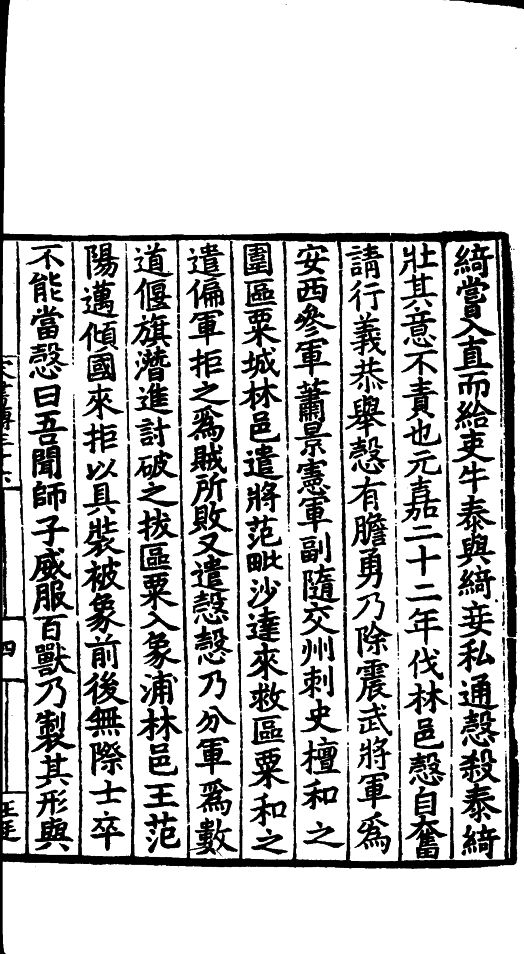 綺嘗入直而給吏牛泰與綺妾私通慤殺泰綺
壯其意不責也元嘉二十二年伐林邑慤自奮
請行義恭舉慤有膽勇乃除震武將軍爲
安西參軍蕭景憲軍副隨交州刺史檀和之
圍區粟城林邑遣將范毗沙達來救區粟和之
遣偏軍拒之爲賊所敗又遣慤慤乃分軍爲數
道偃旗潛進討破之拔區粟入象浦林邑王范
陽邁傾國來拒以具裝被象前後無際士卒
不能當慤曰吾聞師子威服百獸乃製其形與
四